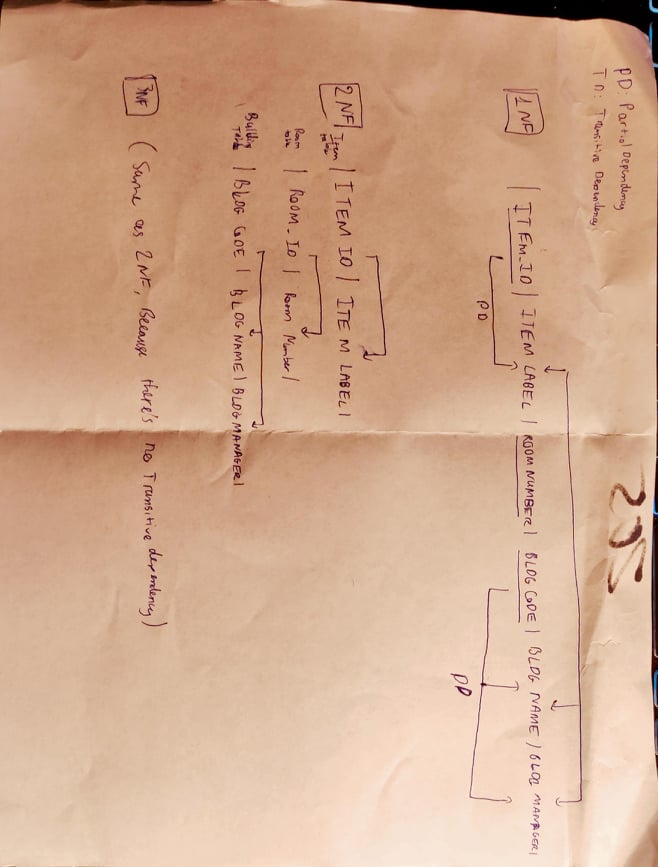 PD: Partial Dependency
TD: Transitive Dependency
295
1NF | ITEM_ID | ITEM LABEL | ROOM NUMBER | BLDG CODE | BLDG NAME | BLDG MANAGER |
PD
PD
2NF
Item table | ITEM ID | ITEM LABEL |
Room table | ROOM_ID | Room Number |
Building Table | BLDG CODE | BLDG NAME | BLDG MANAGER |
3NF (Same as 2NF, Because there's no Transitive dependency)